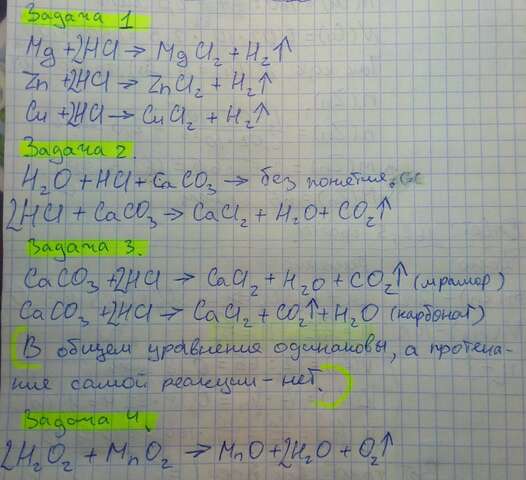 Задача 1
Mg + 2HCl → MgCl₂ + H₂↑
Zn + 2HCl → ZnCl₂ + H₂↑
Cu + 2HCl → CuCl₂ + H₂↑
Задача 2.
H₂O + HCl + CaCO₃ → без понятия.
2HCl + CaCO₃ → CaCl₂ + H₂O + CO₂↑
Задача 3.
CaCO₃ + 2HCl → CaCl₂ + H₂O + CO₂↑ (мрамор)
CaCO₃ + 2HCl → CaCl₂ + CO₂↑ + H₂O (карбонат)
(В общем уравнения одинаковы, а протека-
ние самой реакции - нет.)
Задача 4.
2H₂O₂ + MnO₂ → MnO + 2H₂O + O₂↑